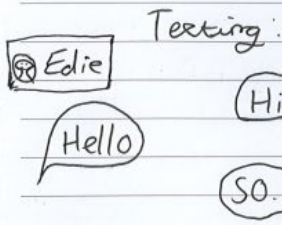 Texting:
Edie
Hi
Hello
SO.